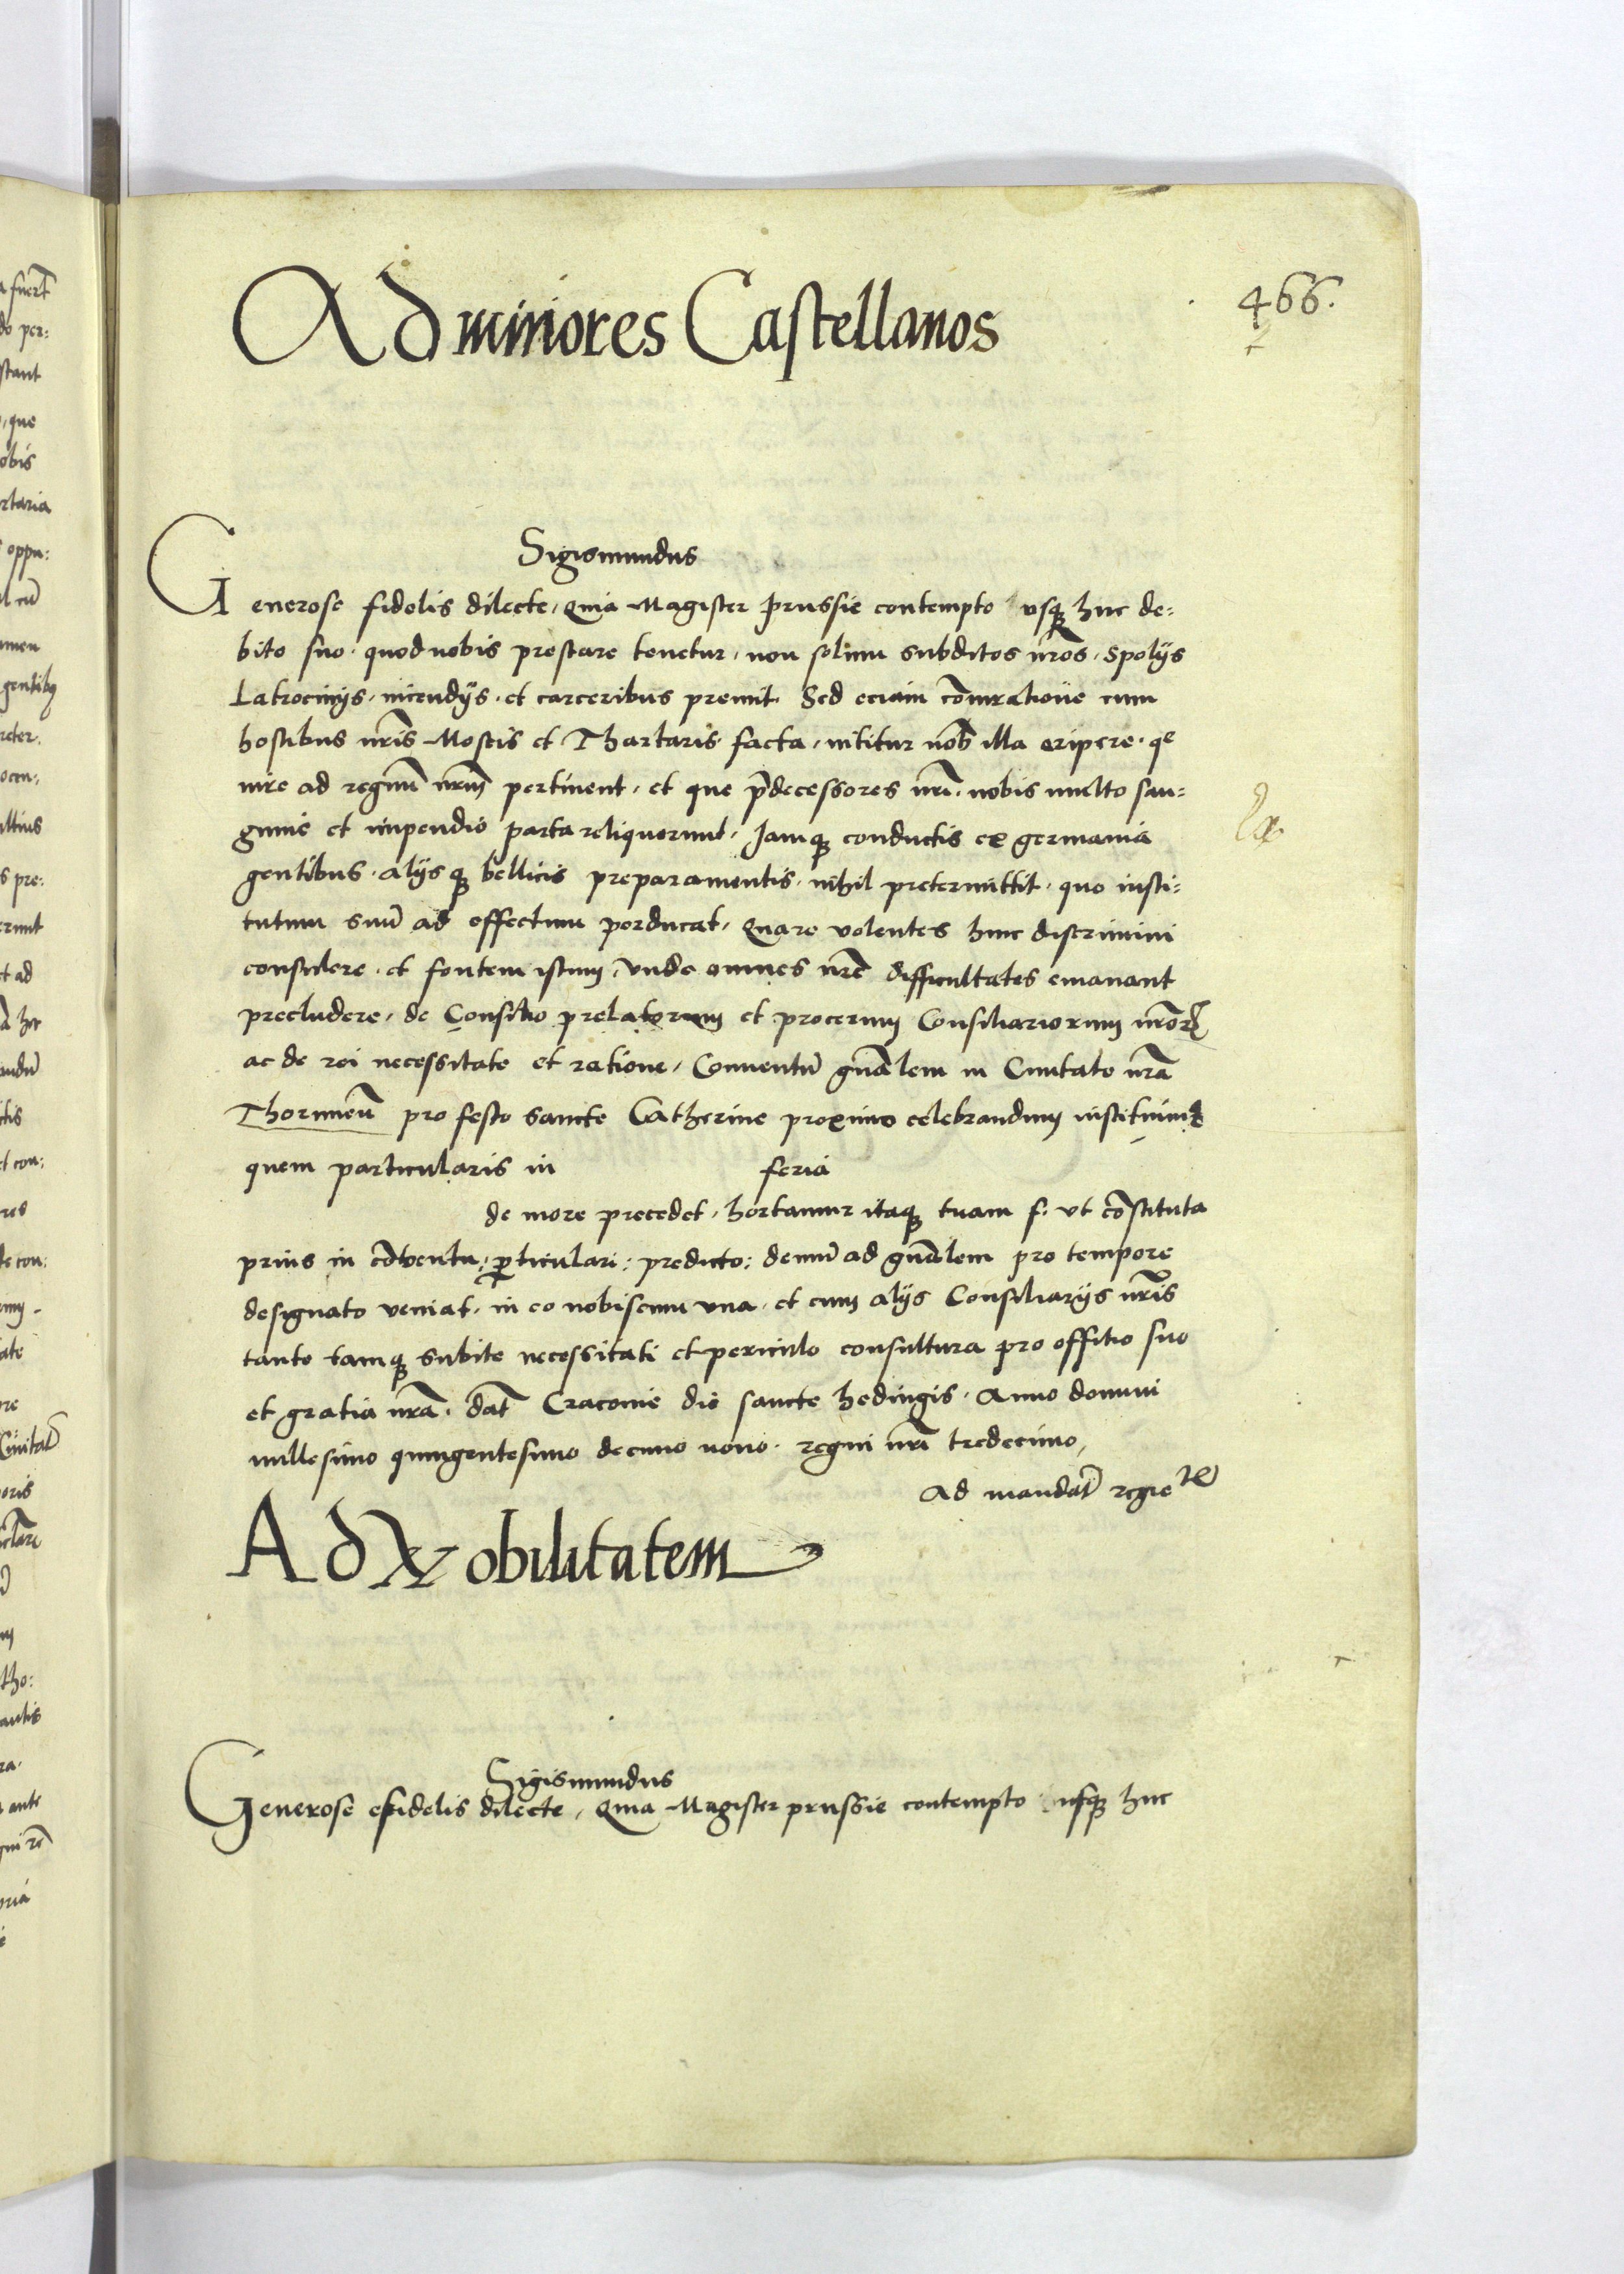 Ad minores Castellanos
466.
Sigismundus
Generose fidelis dilecte, Quia Magister prussie contempto usq huc de=
bito suo. quod nobis prestare tenetur, non solum subditos nros. spolijs
Latrocinijs. incendijs. et carceribus premit. Sed eciam coniuratione cum
hostibus nris Moscis et Thartaris facta, nititur nob illa eripere. qe
iure ad regnu nrum pertinent. et que pdecessores nri. nobis multo san=
guine et impendio parta reliquerunt. Jamq conductis ex germania
gentibus. alijsq bellicis preparamentis. nihil pretermittit. quo insti=
tutum suu ad effectum perducat. Quare volentes huic discrimini
consulere. et fontem istum, vnde omnes nre difficultates emanant
precludere, de Consilio prelatorum et procerum Consiliariorum nror
ac de rei necessitate et ratione, Conuentu gnalem in Ciuitate nra
Thoruneu pro festo sancte Catherine proximo celebrandum instituim
quem particularis in feria
de more precedet, hortamur itaq tuam f. vt constituta
prius in conuentu, pticulari: predicto: demu ad gnalem pro tempore
designato veniat. in eo nobiscum vna. et cum alijs Consiliarijs nris
tante tamq subite necessitati et periculo consultura pro offitio suo
et gratia nra. dat Cracouie die sancte hedingis. Anno domini
millesimo quingentesimo decimo nono. regni nri tredecimo,
Ad mandat regie
Ad Nobilitatem
Sigismundus
Generose efidelis dilecte, Quia Magister prussie contempto usq huc